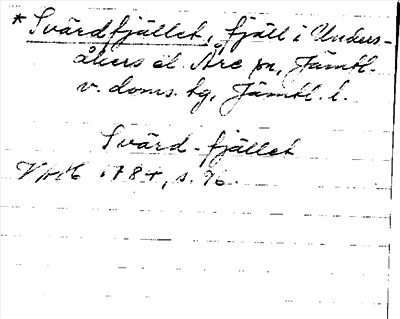 * Svärdfjället, fjäll i Unders-
åkers el. Åre sn, Jämtl.
v. doms. tg, Jämtl. l.
Svärd-fjället
VAH 1784, s. 96.